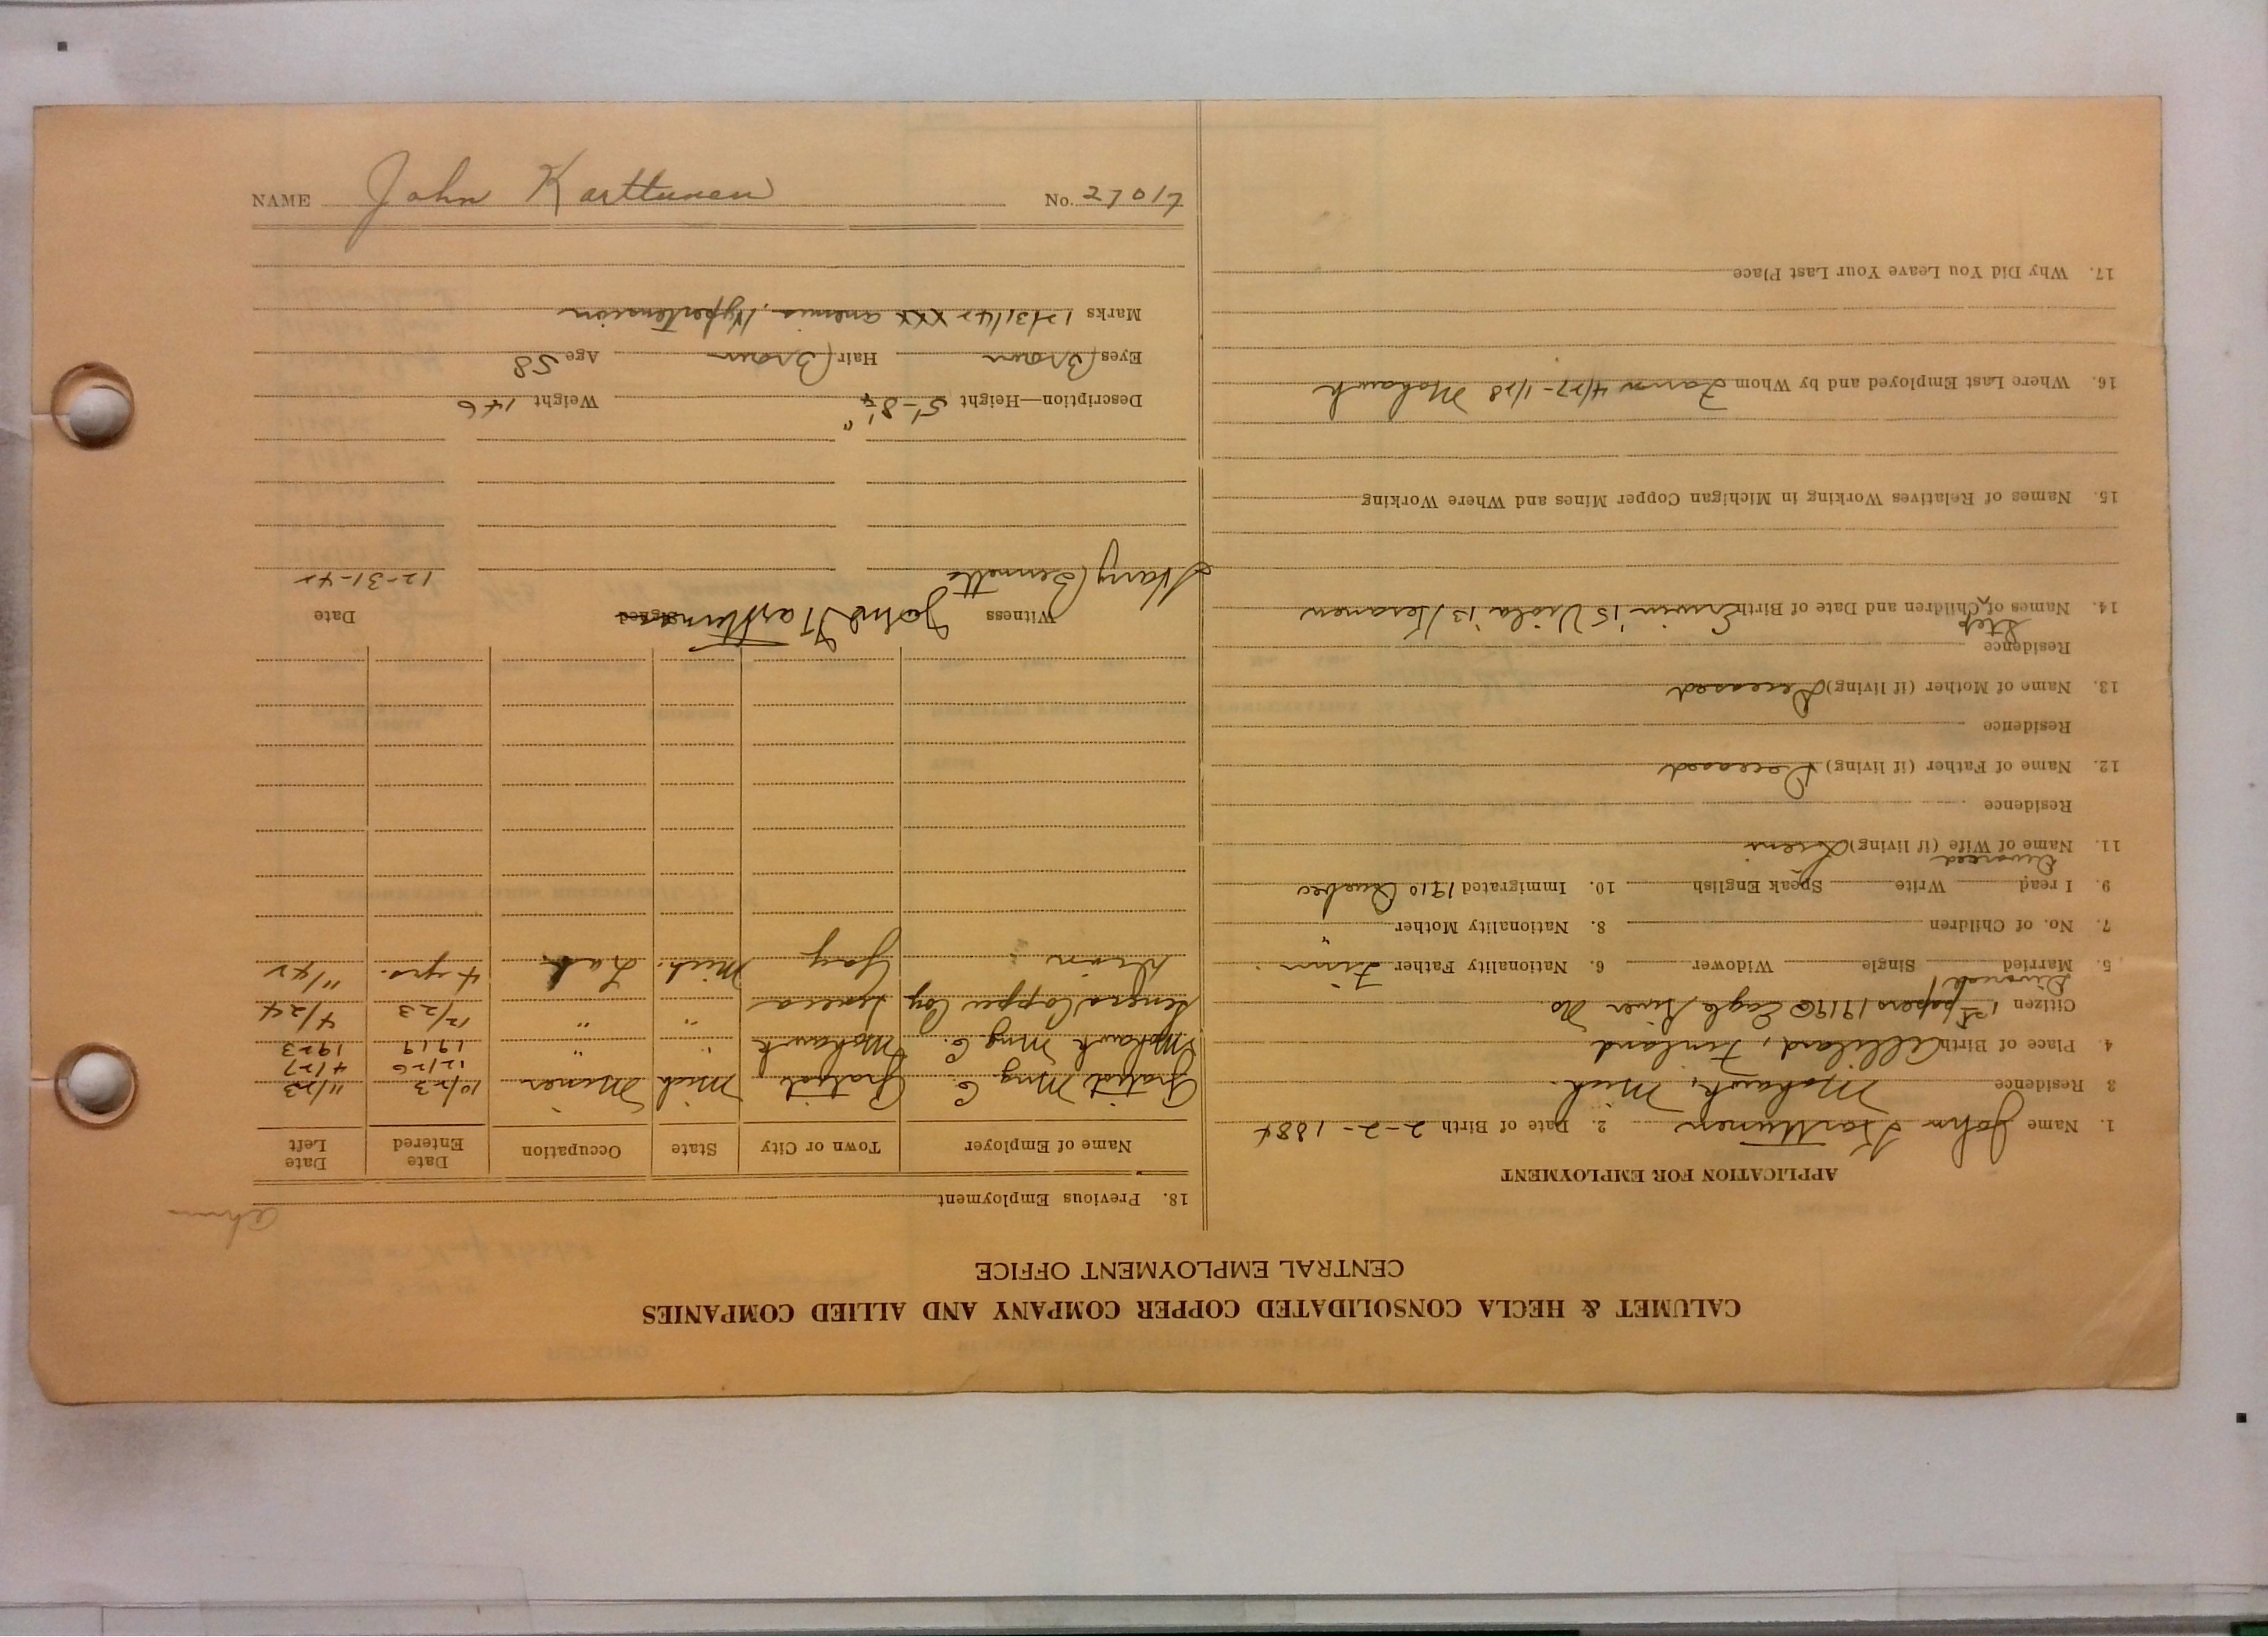 CALUMET & HECLA CONSOLIDATED COPPER COMPANY AND ALLIED COMPANIES
CENTRAL EMPLOYMENT OFFICE
APPLICATION FOR EMPLOYMENT
1. Name John Karttunen 2. Date of Birth 2-2-1884
3 Residence Mohawk, Mich.
4. Place of Birth Finland
Citizen 1st papers 1919 @ Eagle River No
Divorced
5. Married Single Widower 6. Nationality Father Finn
7. No. of Children 8. Nationality Mother "
9. I read Write Speak English 10. Immigrated 1910 Quebec
Divorced
11. Name of Wife (if living)
Residence
12. Name of Father (if living) Deceased
Residence
13. Name of Mother (if living) Deceased
Residence
Step
14. Names of Children and Date of Birth Erwin '15 Viola '13 Kesanen
15. Names of Relatives Working in Michigan Copper Mines and Where Working
16. Where Last Employed and by Whom Farm 4/27-1/28 Mohawk
17. Why Did You Leave Your Last Place
18. Previous Employment
Name of Employer Town or City State Occupation Date Entered Date Left
Gratiot Mng. C. Gratiot Mich Miner 10/23 11/23
12/26 4/27
Mohawk Mng. C. Mohawk " " 1919 1923
Seneca Copper Coy Seneca " " 12/23 4/24
Gay Mich. Lab 4 yrs. 11/42
Witness John Karttunen Signed Date
Harry Bennetts 12-31-42
Description—Height 5'-8 1/4" Weight 146
Eyes Brown Hair Brown Age 58
Marks 12/31/42 XXX anemia, Hypertension
NAME John Karttunen No. 27017